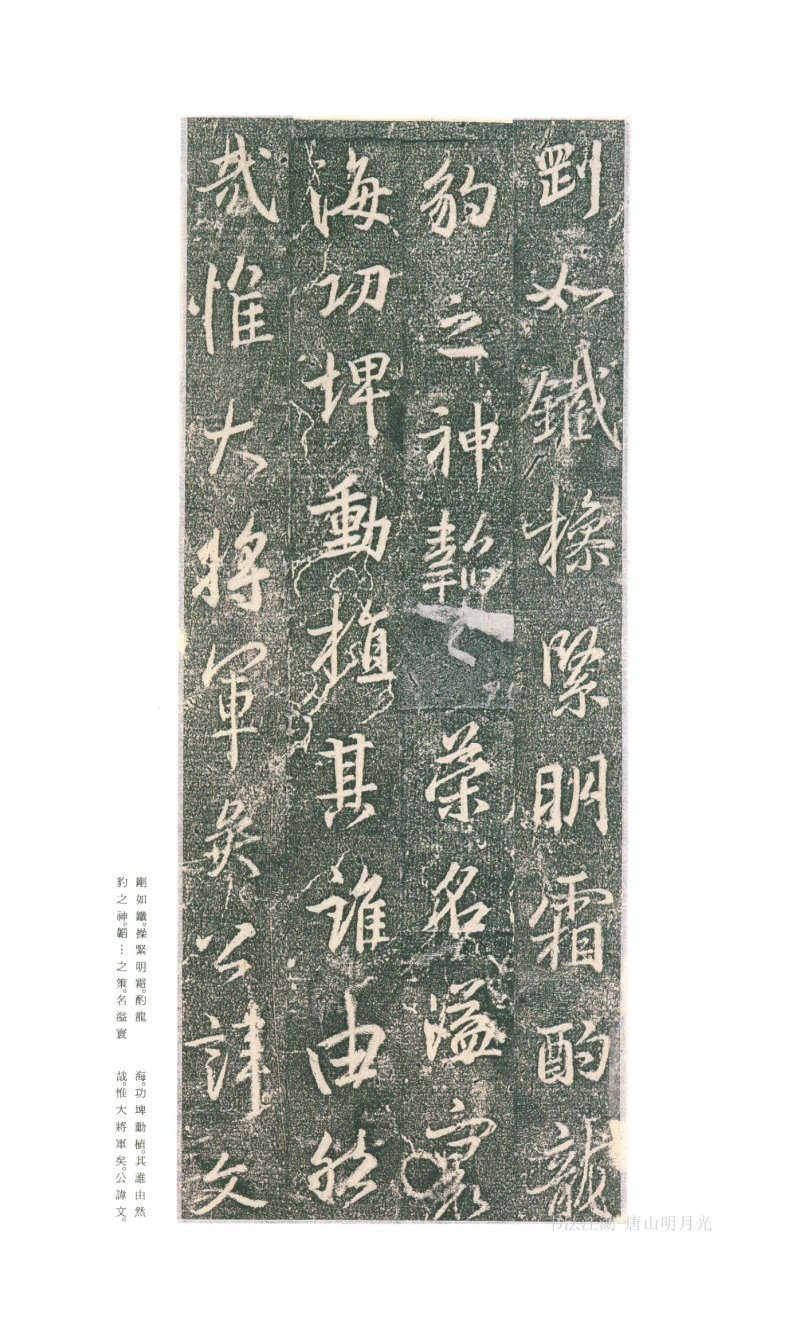 剛如鐵操緊明霜酌龍
豹之神韜之策名溢寰
海功埤動植其誰由然
哉惟大將軍矣公諱文
剛如鐵。操緊明霜。酌龍
豹之神。韜…之策。名溢寰
海。功埤動植。其誰由然
哉。惟大將軍矣。公諱文。
书法江湖-唐山明月光